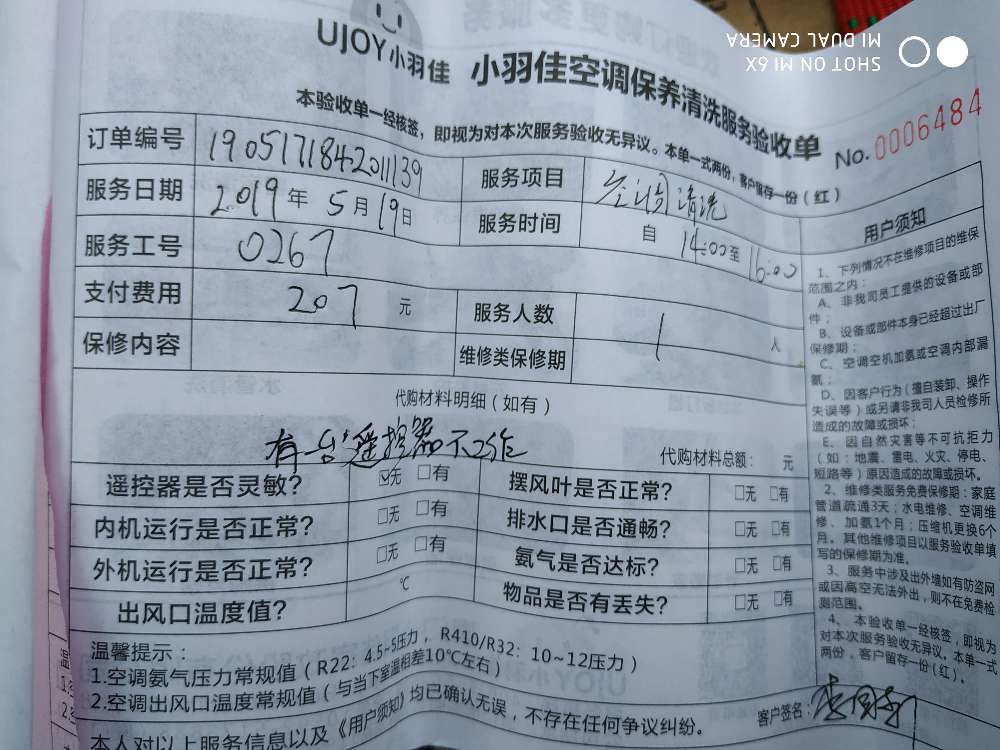 SHOT ON MI 6X
MI DUAL CAMERA
UJOY小羽佳 小羽佳空调保养清洗服务验收单
No. 0006484
本验收单一经核签，即视为对本次服务验收无异议。本单一式两份，客户留存一份（红）
订单编号 1905171842011139 服务项目 空调清洗
服务日期 2019年5月19日 服务时间 自 14:00至 16:00
服务工号 0267
支付费用 207 元 服务人数 1 人
保修内容 维修类保修期
代购材料明细（如有）
有台遥控器不工作
代购材料总额： 元
遥控器是否灵敏？ ☑无 □有 摆风叶是否正常？ □无 □有
内机运行是否正常？ □无 □有 排水口是否通畅？ □无 □有
外机运行是否正常？ □无 □有 氨气是否达标？ □无 □有
出风口温度值？ ℃ 物品是否有丢失？ □无 □有
温馨提示：
1.空调氨气压力常规值（R22：4.5~5压力，R410/R32：10~12压力）
2.空调出风口温度常规值（与当下室温相差10℃左右）
本人对以上服务信息以及《用户须知》均已确认无误，不存在任何争议纠纷。
客户签名：
用户须知
1、下列情况不在维修项目的维保
范围之内：
A、非我司员工提供的设备或部
件；
B、设备或部件本身已经超过出厂
保修期；
C、空调空机加氨或空调内部漏
氨；
D、因客户行为（擅自装卸、操作
失误等）或另请非我司人员检修所
造成的故障或损坏；
E、因自然灾害等不可抗拒力
（如：地震、雷电、火灾、停电、
短路等）原因造成的故障或损坏。
2、维修类服务免费保修期：家庭
管道疏通3天；水电维修、空调维
修、加氨1个月；压缩机更换6个
月。其他维修项目以服务验收单填
写的保修期为准。
3、服务中涉及出外墙如有防盗网
或因高空无法外出，则不在免费检
测范围。
4、本验收单一经核签，即视为
对本次服务验收无异议。本单一式
两份，客户留存一份(红)。